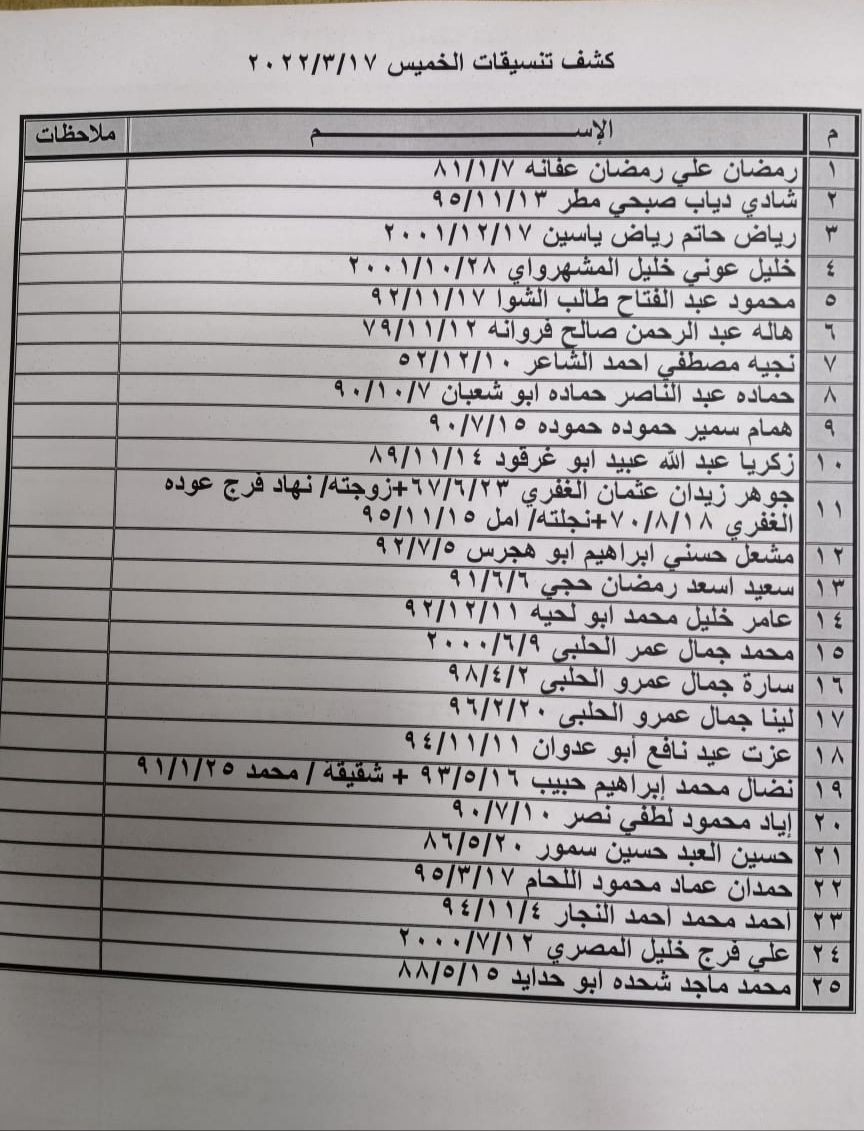 كشف تنسيقات الخميس ٢٠٢٢/٣/١٧
م الإســـــــــم ملاحظات
١ رمضان علي رمضان عفانه ٨١/١/٧
٢ شادي دياب صبحي مطر ٩٥/١١/١٣
٣ رياض حاتم رياض ياسين ٢٠٠١/١٢/١٧
٤ خليل عوني خليل المشهرواي ٢٠٠١/١٠/٢٨
٥ محمود عبد الفتاح طالب الشوا ٩٢/١١/١٧
٦ هاله عبد الرحمن صالح فروانه ٧٩/١١/١٢
٧ نجيه مصطفي احمد الشاعر ٥٢/١٢/١٠
٨ حماده عبد الناصر حماده ابو شعبان ٩٠/١٠/٧
٩ همام سمير حموده حموده ٩٠/٧/١٥
١٠ زكريا عبد الله عبيد ابو غرقود ٨٩/١١/١٤
١١ جوهر زيدان عثمان الغفري ٦٧/٦/٢٣+زوجته/ نهاد فرج عوده
الغفري ٧٠/٨/١٨+نجلته/ امل ٩٥/١١/١٥
١٢ مشعل حسني ابراهيم ابو هجرس ٩٢/٧/٥
١٣ سعيد اسعد رمضان حجي ٩١/٦/٦
١٤ عامر خليل محمد ابو لحيه ٩٢/١٢/١١
١٥ محمد جمال عمر الحلبى ٢٠٠٠/٦/٩
١٦ سارة جمال عمرو الحلبى ٩٨/٤/٢
١٧ لينا جمال عمرو الحلبى ٩٦/٢/٢٠
١٨ عزت عيد نافع أبو عدوان ٩٤/١١/١١
١٩ نضال محمد إبراهيم حبيب ٩٣/٥/١٦ + شقيقة / محمد ٩١/١/٢٥
٢٠ إياد محمود لطفي نصر ٩٠/٧/١٠
٢١ حسين العبد حسين سمور ٨٦/٥/٢٠
٢٢ حمدان عماد محمود اللحام ٩٥/٣/١٧
٢٣ احمد محمد احمد النجار ٩٤/١١/٤
٢٤ علي فرج خليل المصري ٢٠٠٠/٧/١٢
٢٥ محمد ماجد شحده ابو حدايد ٨٨/٥/١٥